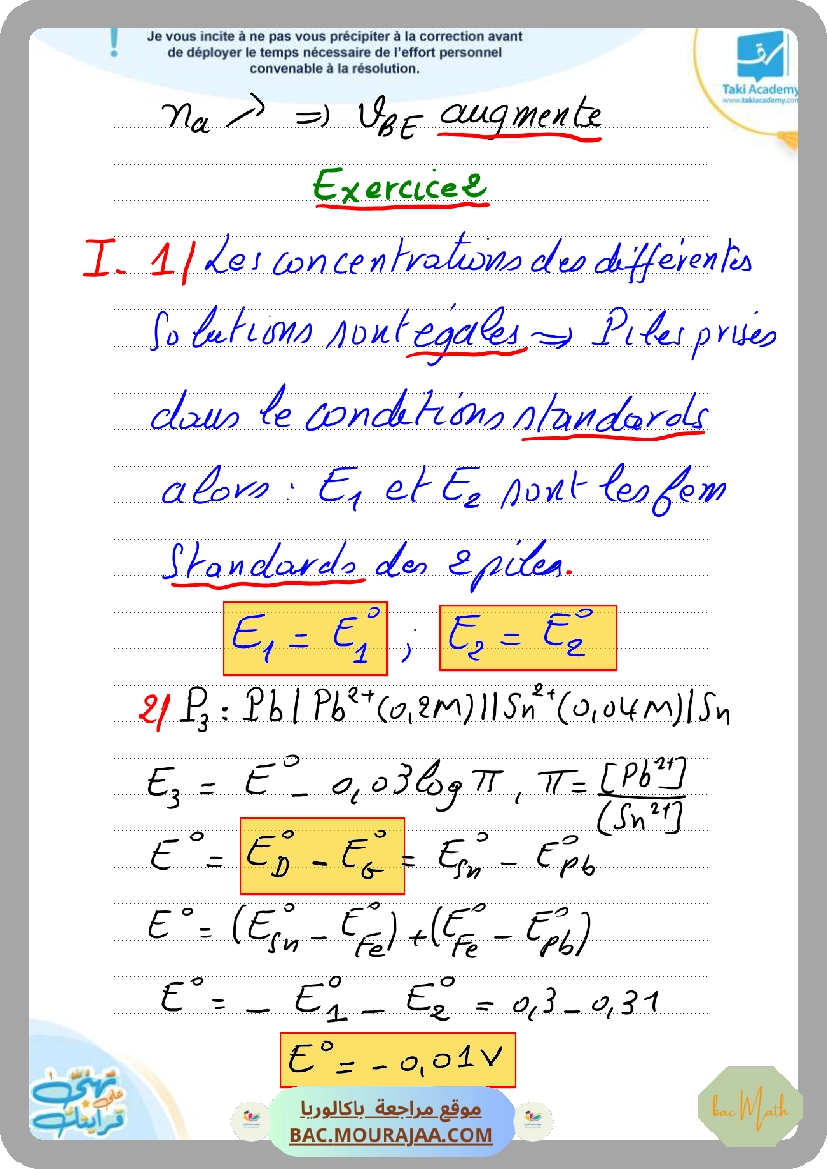 Je vous incite à ne pas vous précipiter à la correction avant
de déployer le temps nécessaire de l'effort personnel
convenable à la résolution.
Taki Academy
www.takiacademy.com
n_a ↗ ⇒ V_BE augmente
Exercice 2
I. 1/ Les concentrations des différentes
solutions sont égales ⇒ Piles prises
dans le conditions standards
alors : E₁ et E₂ sont les fem
standards des 2 piles.
E₁ = E₁° ; E₂ = E₂°
2/ P₃ : Pb | Pb²⁺ (0,2M) || Sn²⁺ (0,04M) | Sn
E₃ = E° - 0,03 log π , π = [Pb²⁺] / [Sn²⁺]
E° = E°_D - E°_G = E°_Sn - E°_Pb
E° = (E°_Sn - E°_Fe) + (E°_Fe - E°_Pb)
E° = - E°₁ - E°₂ = 0,3 - 0,31
E° = - 0,01 V
موقع مراجعة باكالوريا
BAC.MOURAJAA.COM
bac Math